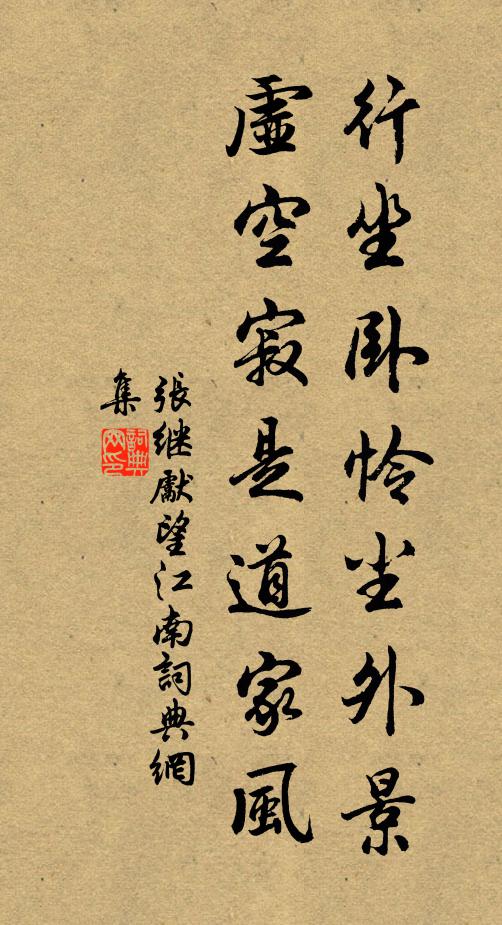 行坐卧怜尘外景
虛空寂是道家風
張继獻望江南詞典網
集
詞典网印